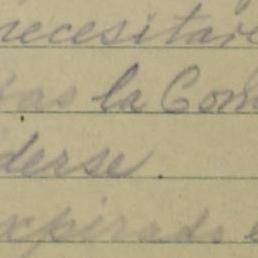 necesitare
as la Com
derse.
xpirado e